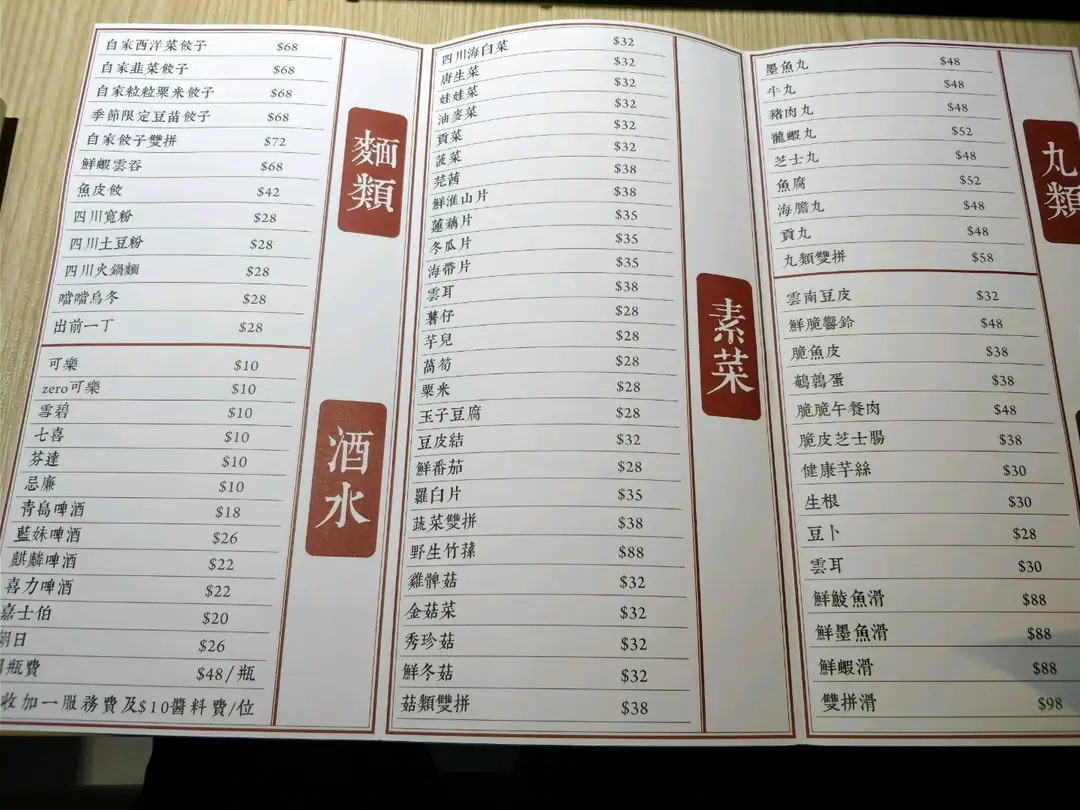 自家西洋菜餃子 $68
自家韭菜餃子 $68
自家粒粒粟米餃子 $68
季節限定豆苗餃子 $68
自家餃子雙拼 $72
鮮蝦雲吞 $68
魚皮餃 $42
四川寬粉 $28
四川土豆粉 $28
四川火鍋麵 $28
噹噹烏冬 $28
出前一丁 $28
麵類
可樂 $10
zero可樂 $10
雪碧 $10
七喜 $10
芬達 $10
忌廉 $10
青島啤酒 $18
藍妹啤酒 $26
麒麟啤酒 $22
喜力啤酒 $22
嘉士伯 $20
朝日 $26
瓶費 $48/瓶
收加一服務費及$10醬料費/位
酒水
四川海白菜 $32
唐生菜 $32
娃娃菜 $32
油麥菜 $32
貢菜 $32
菠菜 $32
芫茜 $38
鮮淮山片 $38
蓮藕片 $35
冬瓜片 $35
海帶片 $35
雲耳 $38
薯仔 $28
芋兒 $28
萵筍 $28
粟米 $28
玉子豆腐 $28
豆皮結 $32
鮮番茄 $28
羅白片 $35
蔬菜雙拼 $38
野生竹蓀 $88
雞髀菇 $32
金菇菜 $32
秀珍菇 $32
鮮冬菇 $32
菇類雙拼 $38
素菜
墨魚丸 $48
牛丸 $48
豬肉丸 $48
龍蝦丸 $52
芝士丸 $48
魚腐 $52
海膽丸 $48
貢丸 $48
丸類雙拼 $58
丸類
雲南豆皮 $32
鮮脆響鈴 $48
脆魚皮 $38
鵪鶉蛋 $38
脆脆午餐肉 $48
脆皮芝士腸 $38
健康芋絲 $30
生根 $30
豆卜 $28
雲耳 $30
鮮鯪魚滑 $88
鮮墨魚滑 $88
鮮蝦滑 $88
雙拼滑 $98